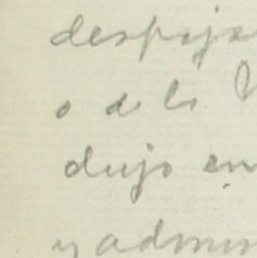 despoja
o de la
dujo en
y admin